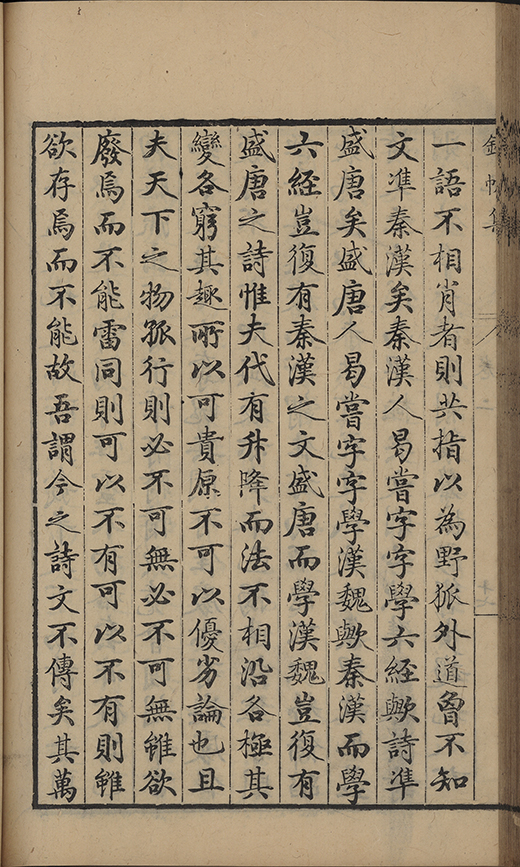 一語不相肖者則共指以為野狐外道曾不知
文凖秦漢矣秦漢人曷嘗字字學六經歟詩凖
盛唐矣盛唐人曷嘗字字學漢魏歟秦漢而學
六經豈復有秦漢之文盛唐而學漢魏豈復有
盛唐之詩惟夫代有升降而法不相沿各極其
變各窮其趣所以可貴原不可以優劣論也且
夫天下之物孤行則必不可無必不可無雖欲
廢焉而不能雷同則可以不有可以不有則雖
欲存焉而不能故吾謂今之詩文不傳矣其萬